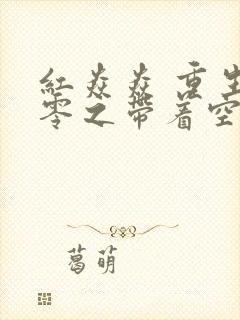 紅焱焱 重生
零之帶着空
葛萌